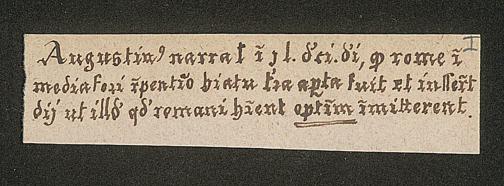 Augustinꝰ narrat ī j l. d̄ci. dī, ꝙ rome ī
media fori rp̄entīo hiatu t̄ra ap̄ta fuit et inſſer̄t
dij ut illd̄ qd̄ romani h̄ient optīm īmitterent.
I